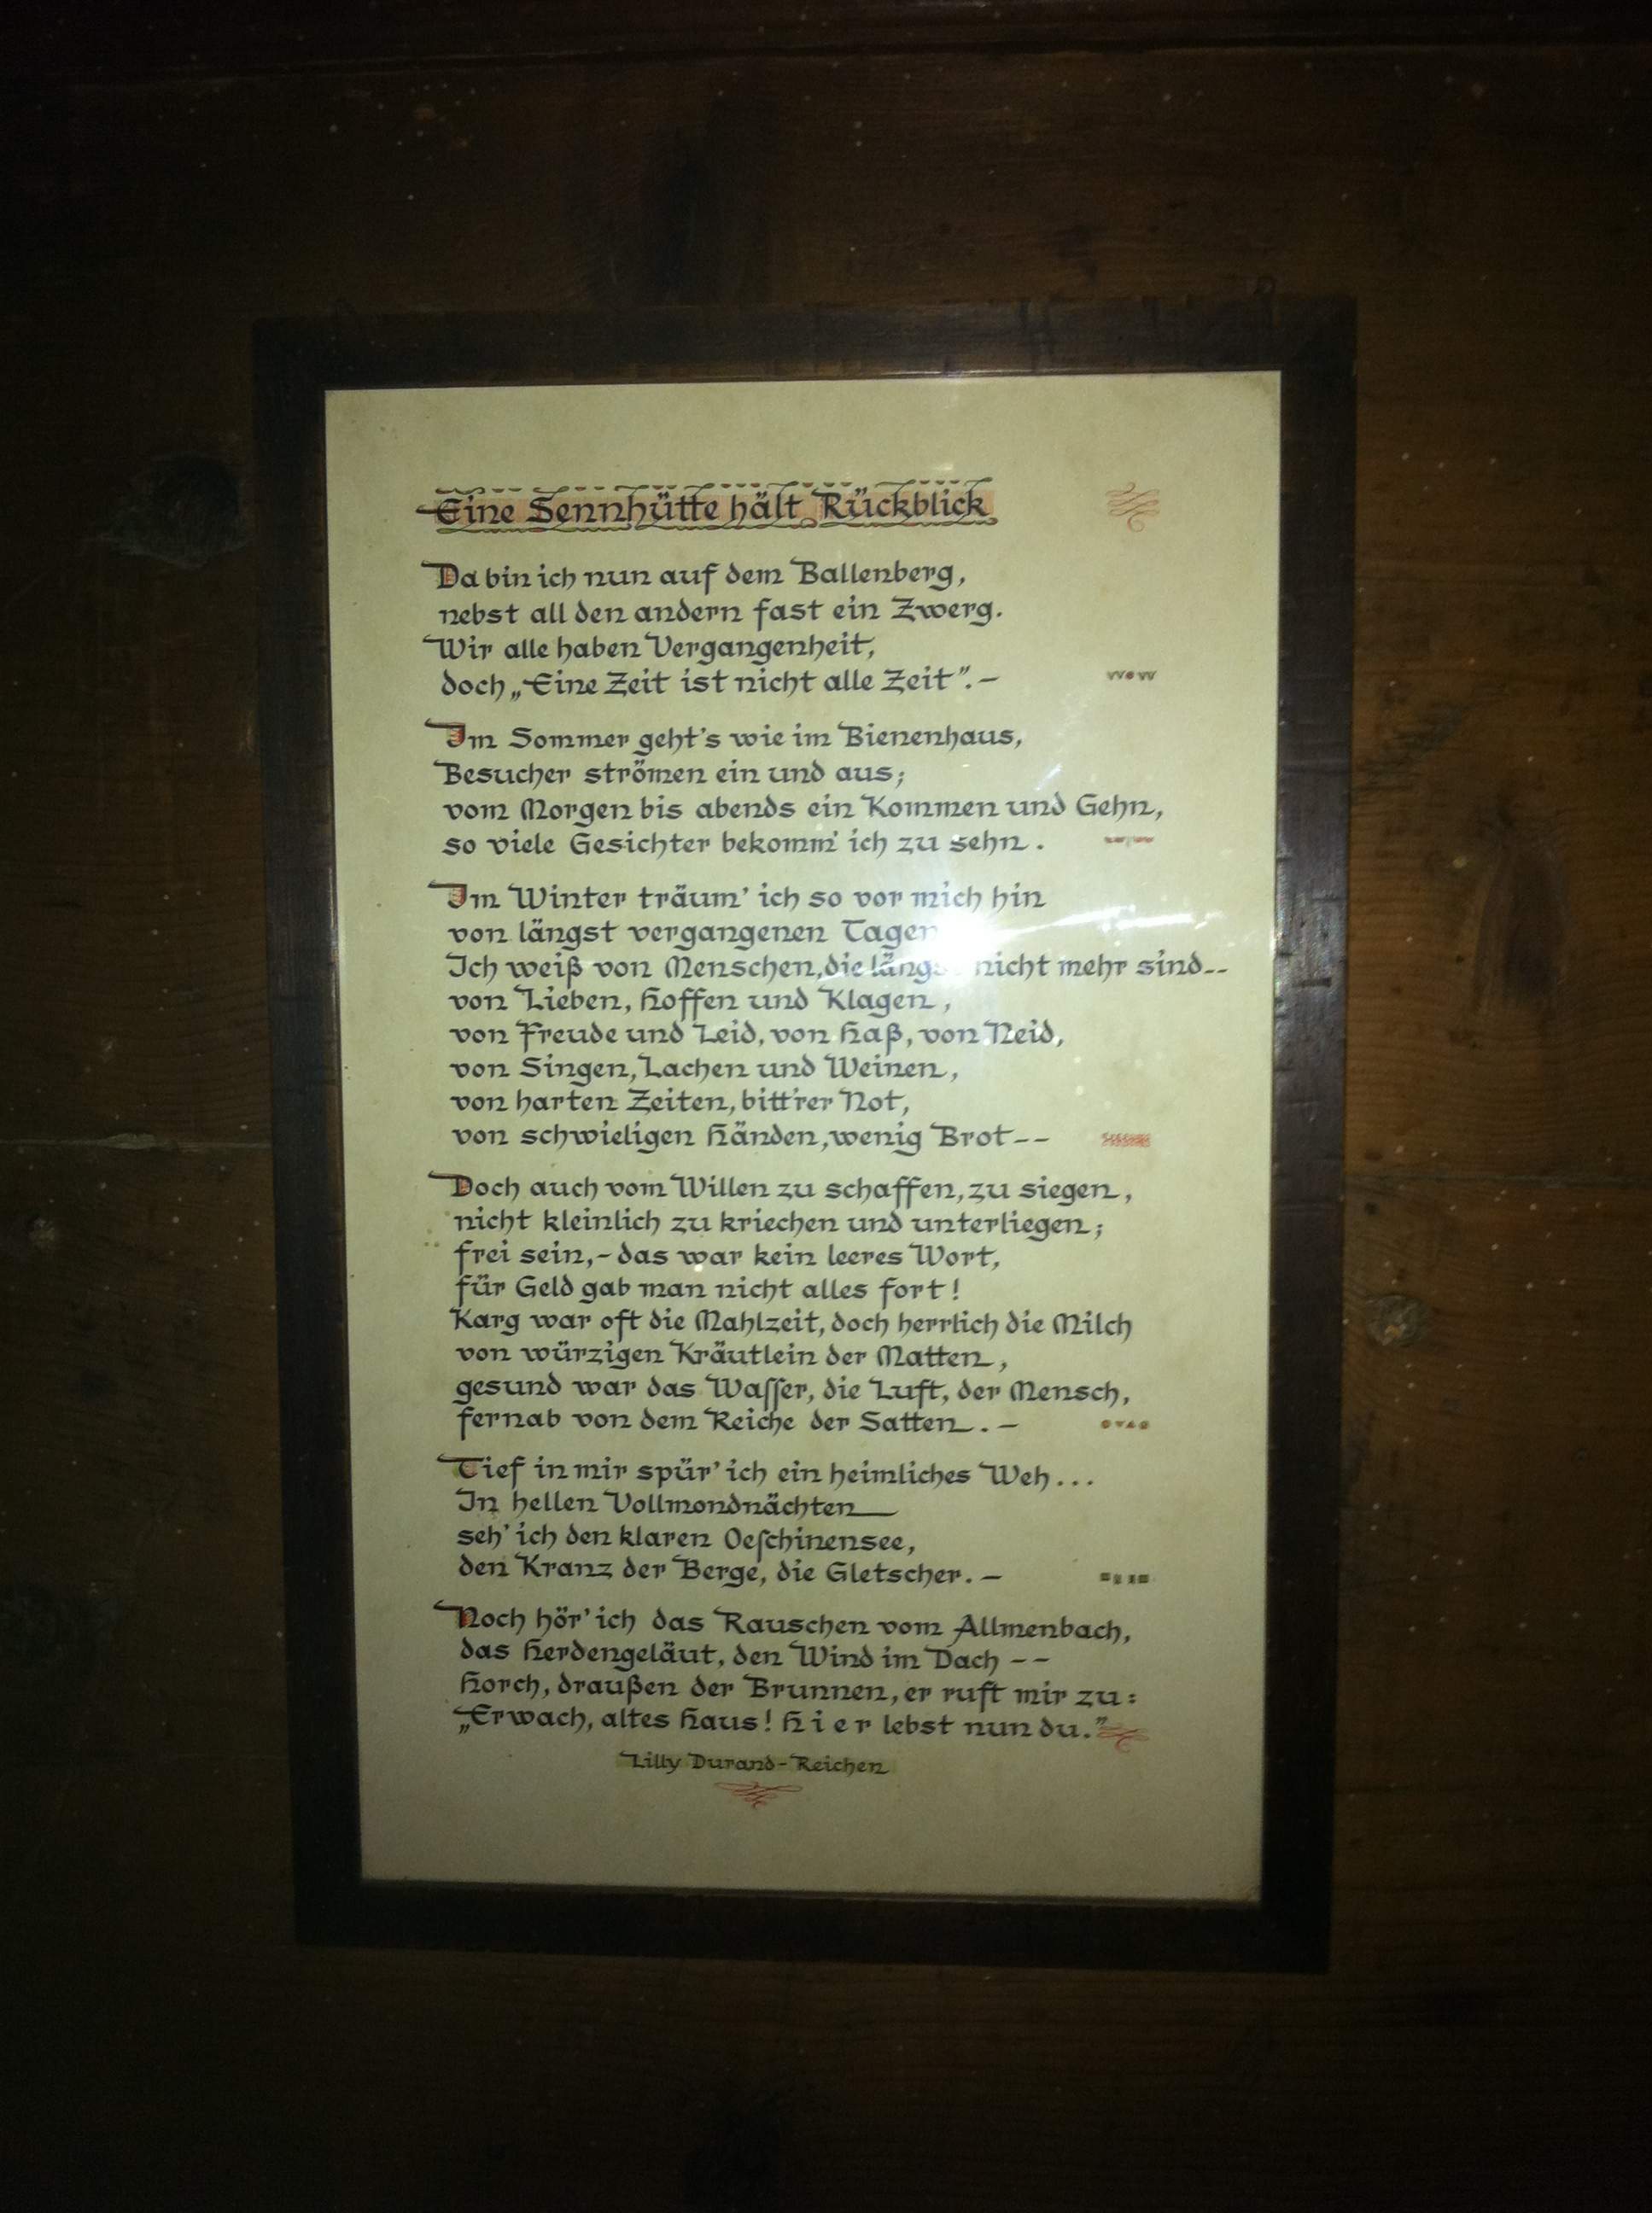 Eine Sennhütte hält Rückblick
Da bin ich nun auf dem Ballenberg,
nebst all den andern fast ein Zwerg.
Wir alle haben Vergangenheit,
doch „Eine Zeit ist nicht alle Zeit“. –
Im Sommer geht's wie im Bienenhaus,
Besucher strömen ein und aus;
vom Morgen bis abends ein Kommen und Gehn,
so viele Gesichter bekomm' ich zu sehn.
Im Winter träum' ich so vor mich hin
von längst vergangenen Tagen
Ich weiß von Menschen, die längst nicht mehr sind--
von Lieben, Hoffen und Klagen,
von Freude und Leid, von Haß, von Neid,
von Singen, Lachen und Weinen,
von harten Zeiten, bitt'rer Not,
von schwieligen Händen, wenig Brot--
Doch auch vom Willen zu schaffen, zu siegen,
nicht kleinlich zu kriechen und unterliegen;
frei sein,- das war kein leeres Wort,
für Geld gab man nicht alles fort!
Karg war oft die Mahlzeit, doch herrlich die Milch
von würzigen Kräutlein der Matten,
gesund war das Waſſer, die Luft, der Mensch,
fernab von dem Reiche der Satten. –
Tief in mir spür' ich ein heimliches Weh...
In hellen Vollmondnächten
seh' ich den klaren Oeſchinensee,
den Kranz der Berge, die Gletscher. –
Noch hör' ich das Rauschen vom Allmenbach,
das Herdengeläut, den Wind im Dach --
Horch, draußen der Brunnen, er ruft mir zu:
„Erwach, altes Haus! Hier lebst nun du.“
Lilly Durand-Reichen